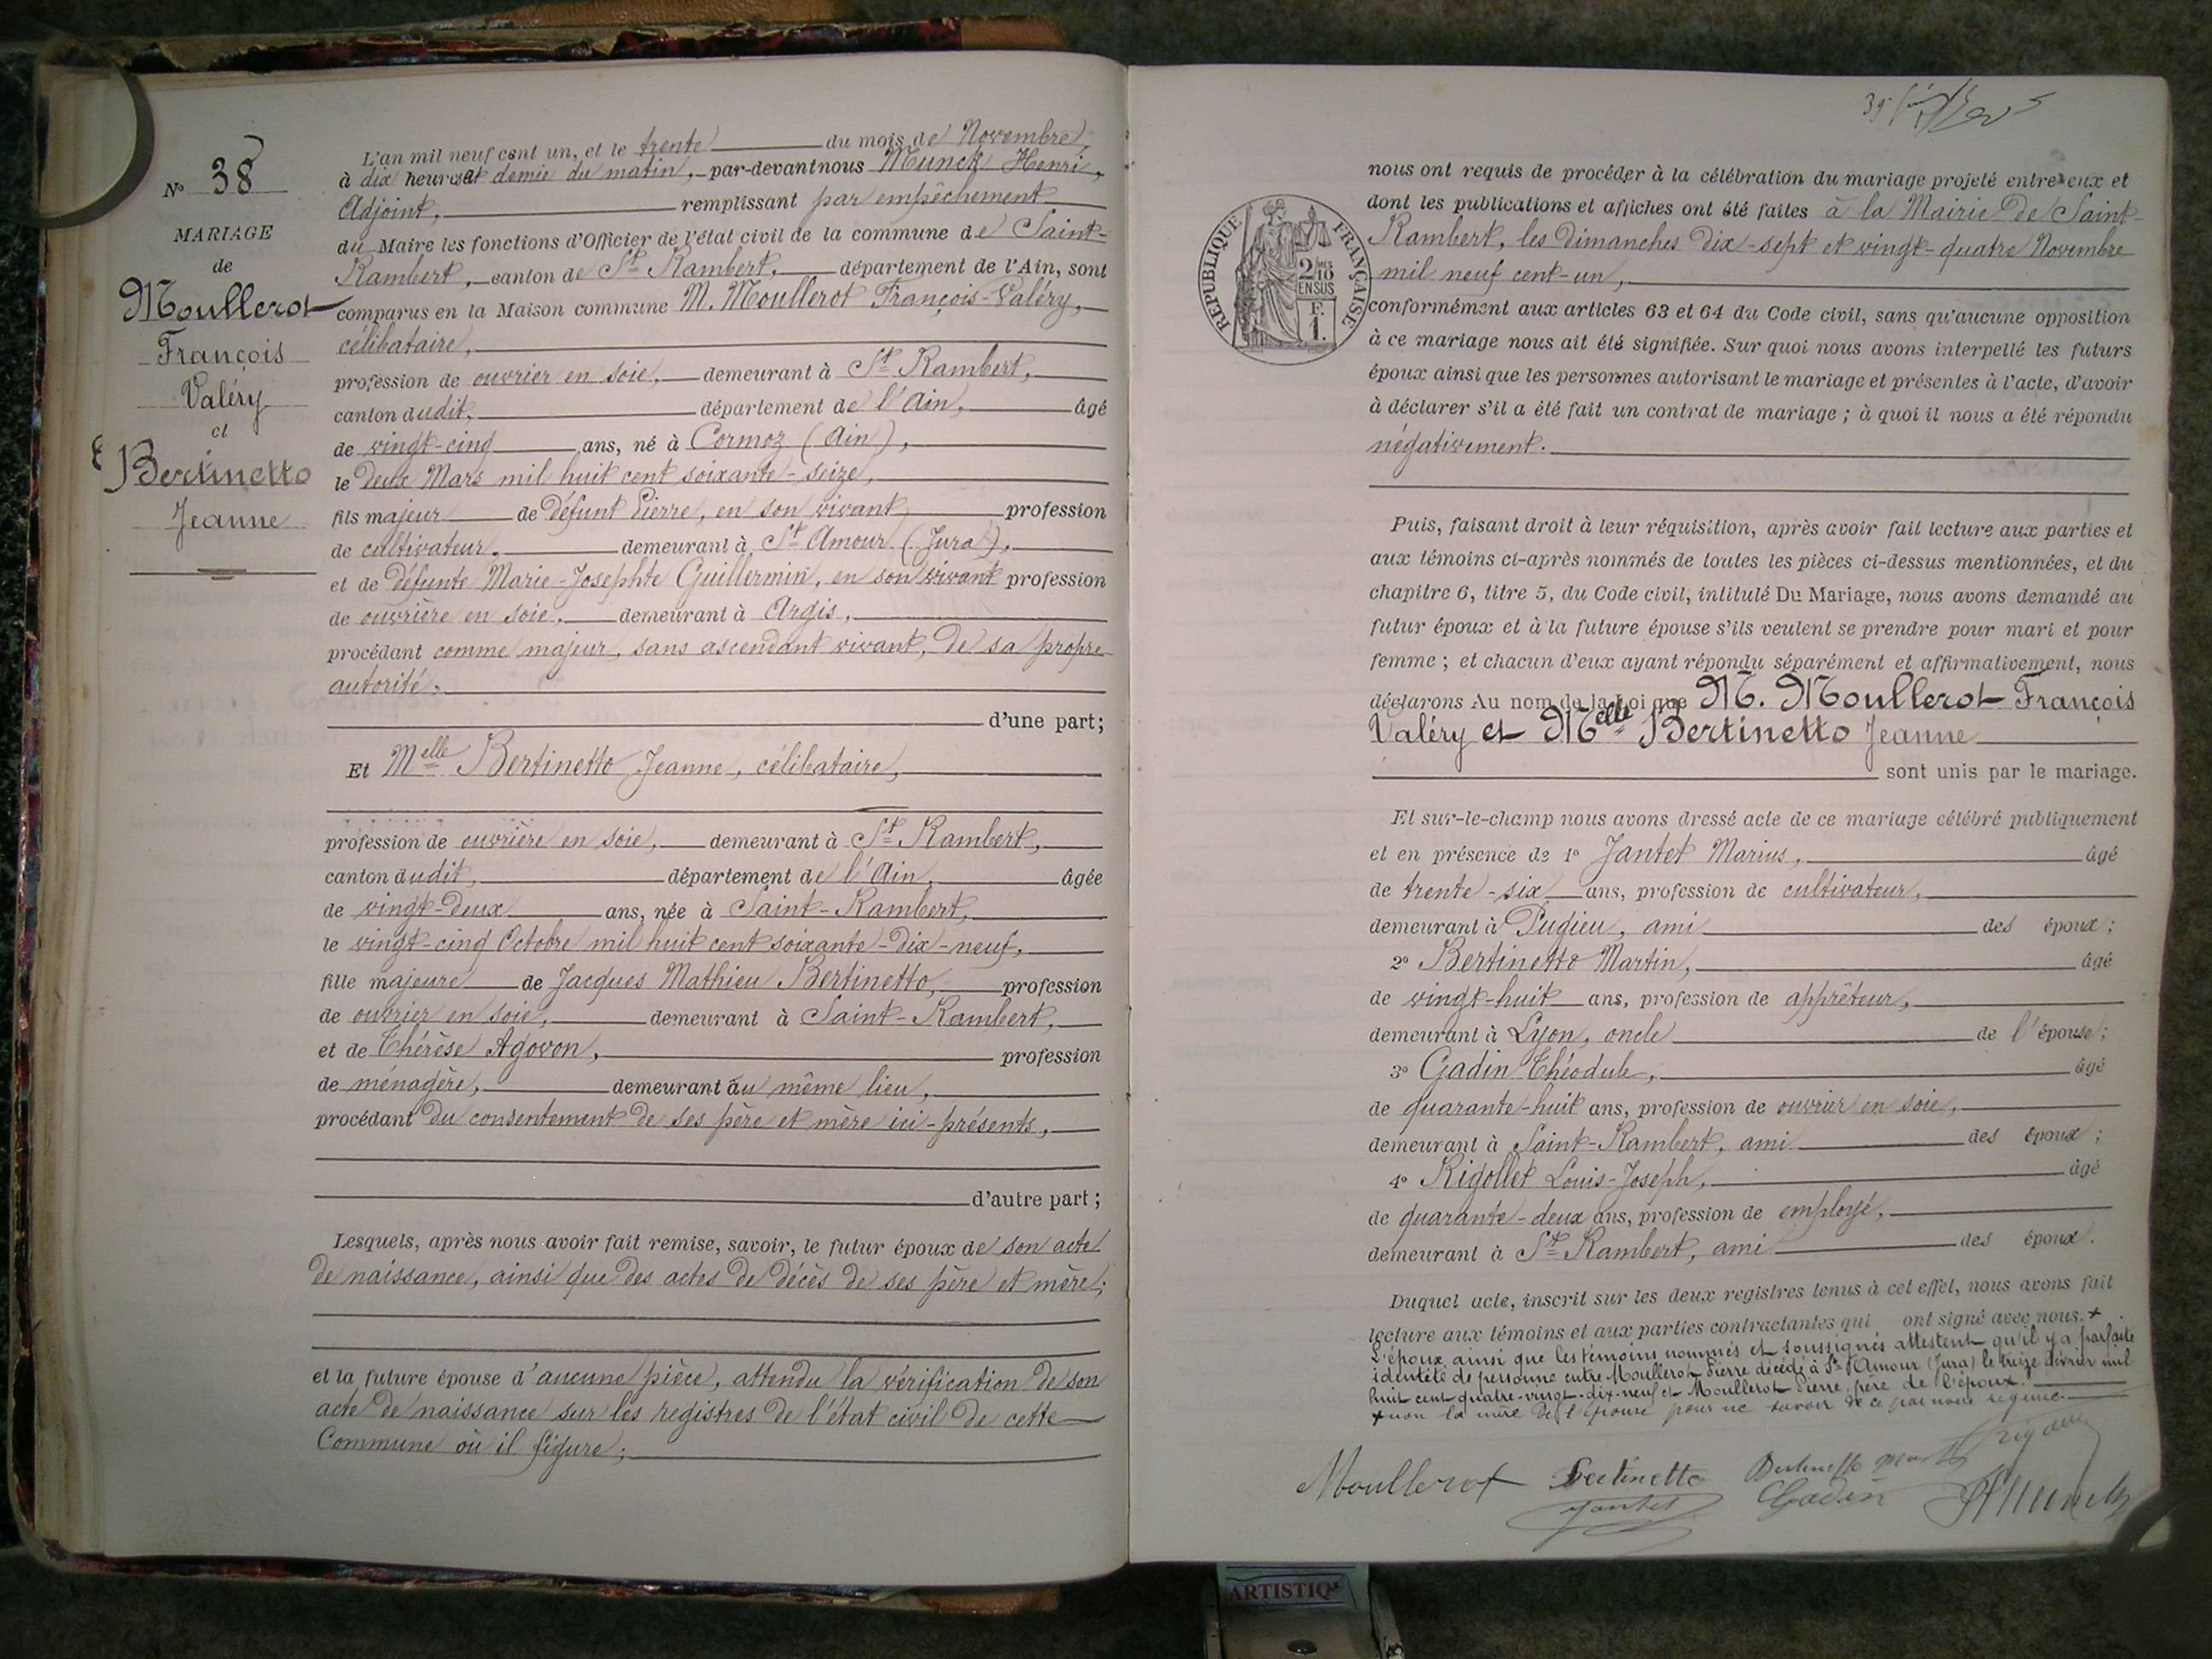 N° 38
MARIAGE
de
Moullerot
François
Valéry
et
Bertinetto
Jeanne
L'an mil neuf cent un, et le trente du mois de Novembre,
à dix heures et demie du matin, par-devant nous Munck Henri,
Adjoint, remplissant par empêchement
du Maire les fonctions d'Officier de l'état civil de la commune de Saint-
Rambert, canton de St Rambert, département de l'Ain, sont
comparus en la Maison commune M. Moullerot François-Valéry,
célibataire,
profession de ouvrier en soie, demeurant à St Rambert,
canton dudit, département de l'Ain, âgé
de vingt-cinq ans, né à Cormoz (Ain),
le deux Mars mil huit cent soixante-seize,
fils majeur de défunt Pierre, en son vivant, profession
de cultivateur, demeurant à St Amour (Jura),
et de défunte Marie-Josephte Guillermin, en son vivant profession
de ouvrière en soie, demeurant à Argis,
procédant comme majeur, sans ascendant vivant, de sa propre
autorité.
d'une part;
Et Melle Bertinetto Jeanne, célibataire,
profession de ouvrière en soie, demeurant à St Rambert,
canton dudit, département de l'Ain, âgée
de vingt-deux ans, née à Saint-Rambert,
le vingt-cinq Octobre mil huit cent soixante-dix-neuf,
fille majeure de Jacques Mathieu Bertinetto, profession
de ouvrier en soie, demeurant à Saint-Rambert,
et de Thérèse Agovon, profession
de ménagère, demeurant au même lieu,
procédant du consentement de ses père et mère ici-présents,
d'autre part;
Lesquels, après nous avoir fait remise, savoir, le futur époux de son acte
de naissance, ainsi que des actes de décès de ses père et mère;
et la future épouse d'aucune pièce, attendu la vérification de son
acte de naissance sur les registres de l'état civil de cette
Commune où il figure;
nous ont requis de procéder à la célébration du mariage projeté entre eux et
dont les publications et affiches ont été faites à la Mairie de Saint-
Rambert, les Dimanches dix-sept et vingt-quatre Novembre
mil neuf cent-un,
RÉPUBLIQUE FRANÇAISE
2/10
EN SUS
F.
1.
conformément aux articles 63 et 64 du Code civil, sans qu'aucune opposition
à ce mariage nous ait été signifiée. Sur quoi nous avons interpellé les futurs
époux ainsi que les personnes autorisant le mariage et présentes à l'acte, d'avoir
à déclarer s'il a été fait un contrat de mariage ; à quoi il nous a été répondu
négativement.
Puis, faisant droit à leur réquisition, après avoir fait lecture aux parties et
aux témoins ci-après nommés de toutes les pièces ci-dessus mentionnées, et du
chapitre 6, titre 5, du Code civil, intitulé Du Mariage, nous avons demandé au
futur époux et à la future épouse s'ils veulent se prendre pour mari et pour
femme ; et chacun d'eux ayant répondu séparément et affirmativement, nous
déclarons Au nom de la Loi que M. Moullerot François
Valéry et Melle Bertinetto Jeanne
sont unis par le mariage.
Et sur-le-champ nous avons dressé acte de ce mariage célébré publiquement
et en présence de 1° Jantet Marius, âgé
de trente-six ans, profession de cultivateur,
demeurant à Pugieu, ami des époux ;
2° Bertinetto Martin, âgé
de vingt-huit ans, profession de apprêteur,
demeurant à Lyon, oncle de l'épouse ;
3° Gadin Théodule, âgé
de quarante-huit ans, profession de ouvrier en soie,
demeurant à Saint-Rambert, ami des époux ;
4° Rigollet Louis-Joseph, âgé
de quarante-deux ans, profession de employé,
demeurant à St Rambert, ami des époux.
Duquel acte, inscrit sur les deux registres tenus à cet effet, nous avons fait
lecture aux témoins et aux parties contractantes qui ont signé avec nous. +
L'époux ainsi que les témoins nommés et soussignés attestent qu'il y a parfaite
identité de personne entre Moullerot Pierre décédé à St Amour (Jura) le treize février mil
huit cent quatre-vingt-dix-neuf et Moullerot Pierre, père de l'époux.
+ non la mère de l'épouse pour ne savoir de ce par nous requise.
Moullerot Bertinetto
Jantet Gadin
Munck
ARTISTIQ